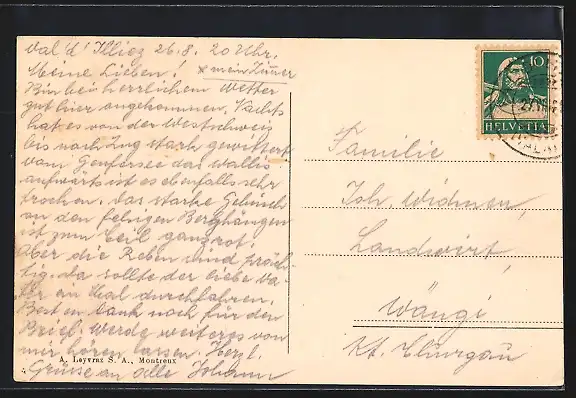 Val d'Illiez 26.8. 20 Uhr.
Meine Lieben! x mein Zimmer
Bin bei herrlichem Wetter
gut hier angekommen. Nachts
hat es von der Westschweiz
bis nach Zug stark gewittert
vom Genfersee das Wallis
aufwärts ist es ebenfalls sehr
trocken. das starke Gebüsch
an den felsigen Berghängen
ist zum Teil ganz rot.
Aber die Reben sind präch-
tig. da sollte der liebe Va-
ter ein Mal durchfahren.
Besten Dank noch für den
Brief. werde weiteres von
mir hören lassen. Herzl.
Grüsse an alle Johann
A. Leyvraz S. A., Montreux
4
10
HELVETIA
Familie
Joh. Widmer,
Landwirt,
Wängi
Kt. Thurgau